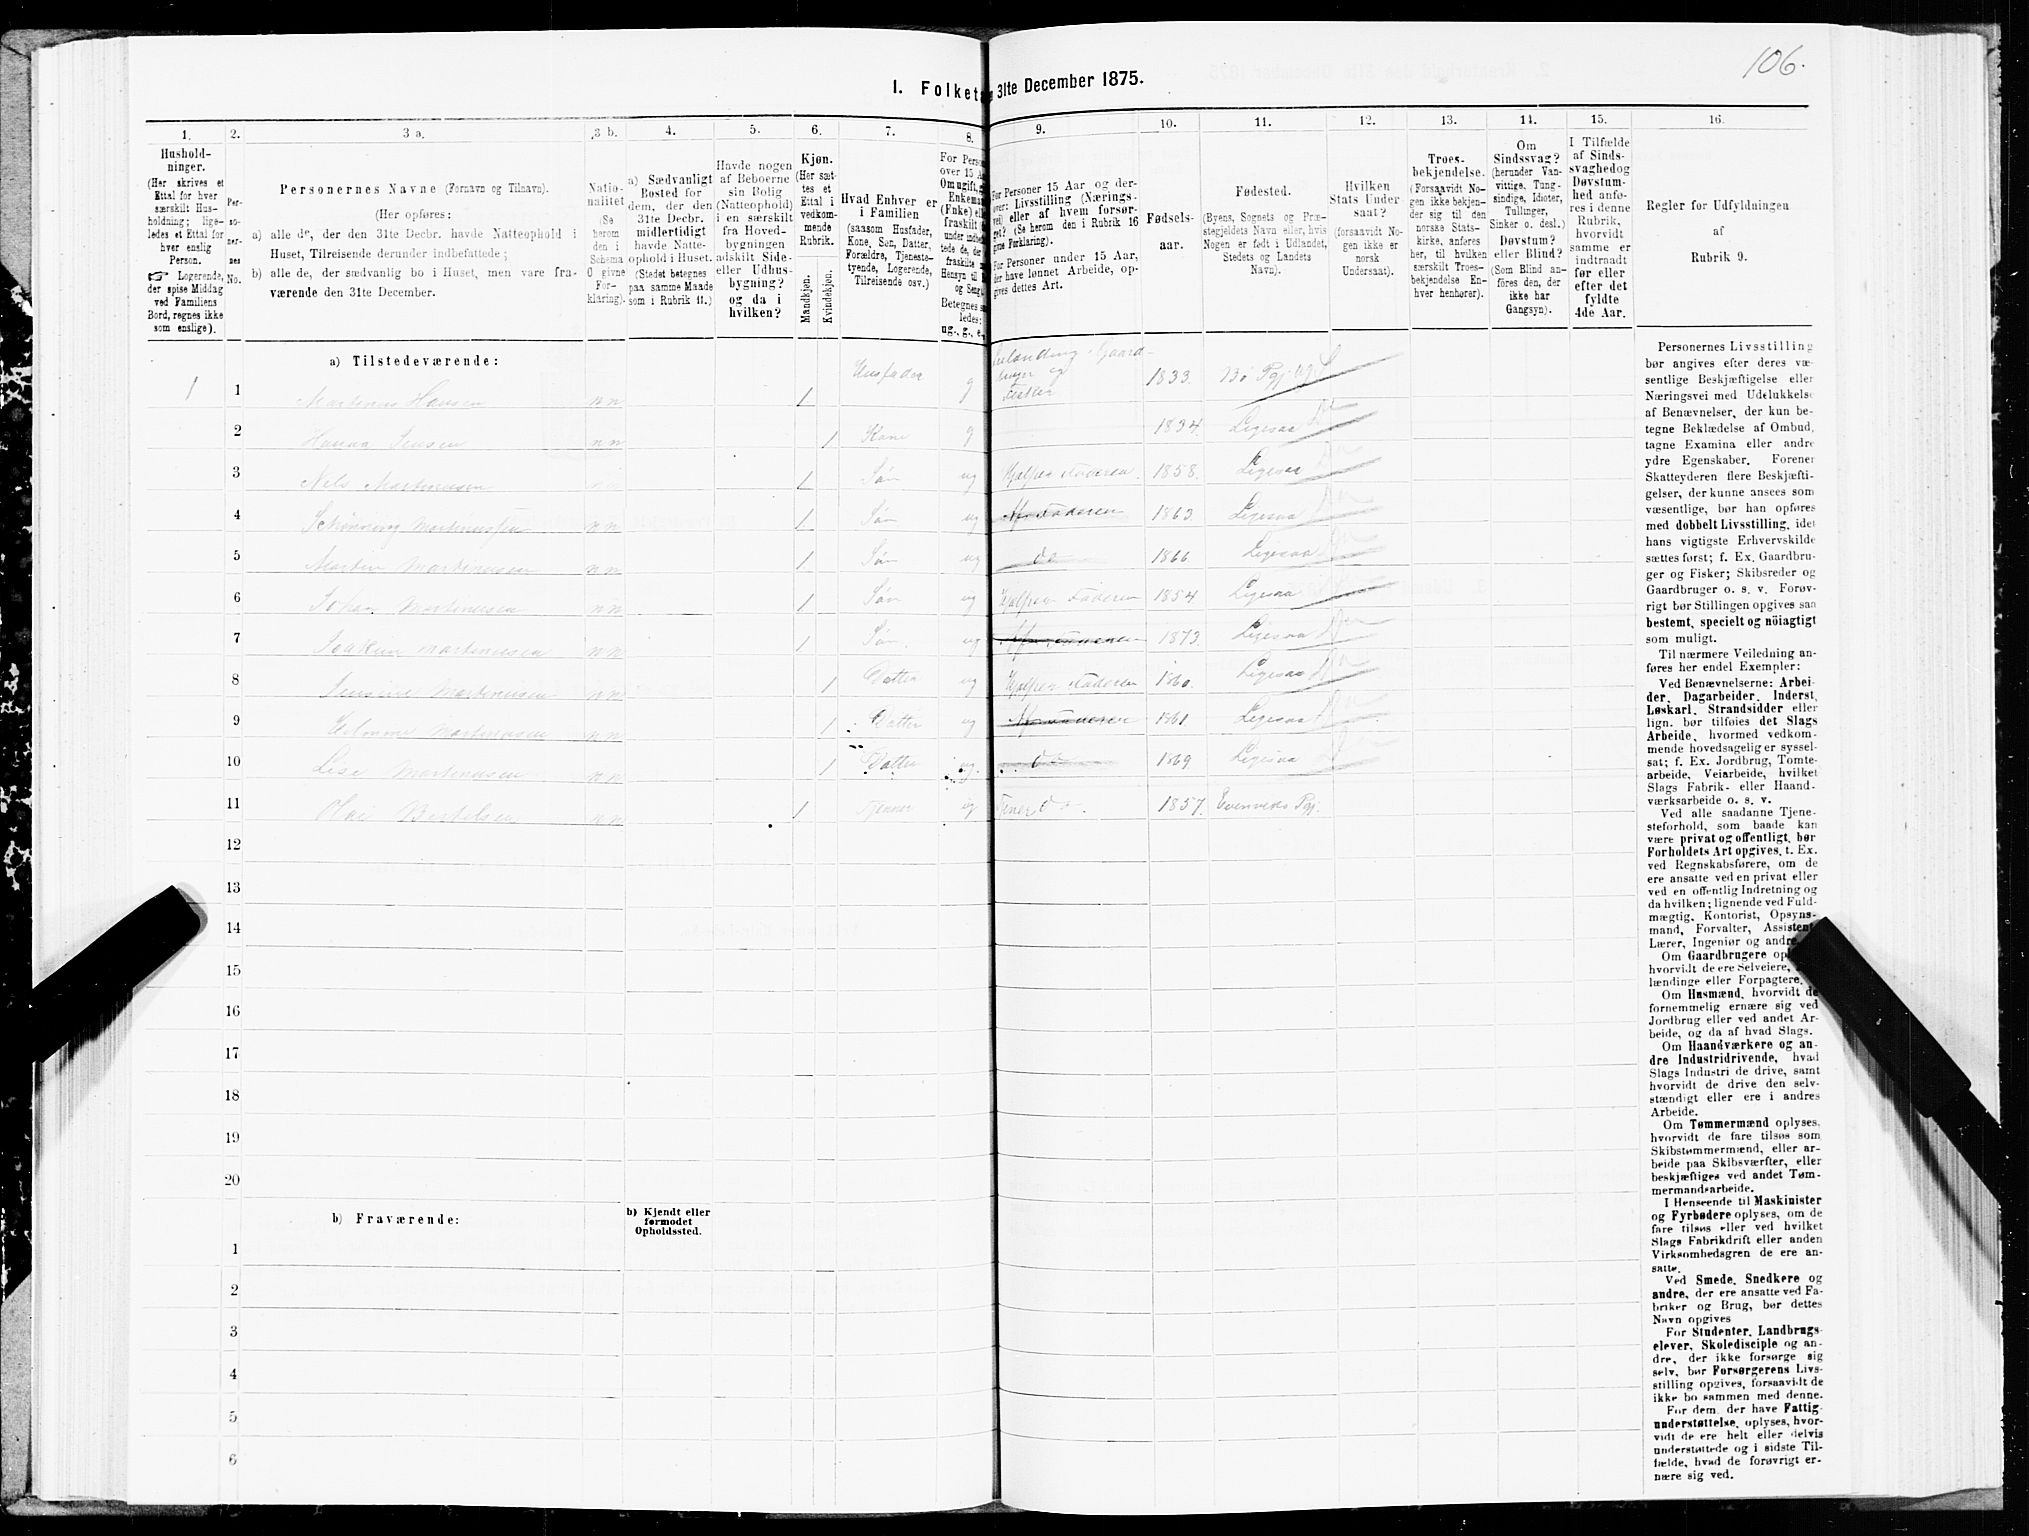 106.
I. Folket 31te December 1875.
1. 2. 3 a. 3 b. 4. 5. 6. 7. 8. 9. 10. 11. 12. 13. 14. 15. 16.
Hushold-
ninger.
(Her skrives et
Ettal for hver
særskilt Hus-
holdning; lige-
ledes et Ettal for
hver enslig
Person.
☞ Logerende,
der spise Middag
ved Familiens
Bord, regnes ikke
som enslige).
Per-
so-
ner-
nes
No.
Personernes Navne (Fornavn og Tilnavn).
(Her opføres:
a) alle de, der den 31te Decbr. havde Natteophold i
Huset, Tilreisende derunder indbefattede;
b) alle de, der sædvanlig bo i Huset, men vare fra-
værende den 31te December.
Natio-
nalitet
(Se
herom
den i
Schema
O givne
For-
klaring).
a) Sædvanligt
Bosted for
dem, der den
31te Decbr.
midlertidigt
havde Natte-
ophold i Huset.
(Stedet betegnes
paa samme Maade
som i Rubrik 11.)
Havde nogen
af Beboerne
sin Bolig
(Natteophold)
i en særskilt
fra Hoved-
bygningen
adskilt Side-
eller Udhus-
bygning?
og da i
hvilken?
Kjøn.
(Her sæt-
tes et
Ettal i
vedkom-
mende
Rubrik.
Mandkjøn.
Kvindekjøn.
Hvad Enhver er
i Familien
(saasom Husfader,
Kone, Søn, Datter,
Forældre, Tjeneste-
tyende, Logerende,
Tilreisende osv.)
For Perso
over 15 A
Om ugift, g
Enkema
(Enke) ell
fraskilt
Betegnes s
ledes:
ug., g., e.,
For Personer 15 Aar og der-
over: Livsstilling (Nærings-
vei) eller af hvem forsør-
get? (Se herom den i Rubrik 16
givne Forklaring).
For Personer under 15 Aar,
der have lønnet Arbeide, op-
gives dettes Art.
Fødsels-
aar.
Fødested.
(Byens, Sognets og Præ-
stegjeldets Navn eller, hvis
Nogen er født i Udlandet,
Stedets og Landets
Navn).
Hvilken
Stats Under
saat?
(forsaavidt No-
gen ikke er
norsk
Undersaat).
Troes-
bekjendelse.
(Forsaavidt No-
gen ikke bekjen-
der sig til den
norske Stats-
kirke, anføres
her, til hvilken
særskilt Troes-
bekjendelse En-
hver henhører).
Om
Sindssvag?
(herunder Van-
vittige, Tung-
sindige, Idioter,
Tullinger,
Sinker o. desl.)
Døvstum?
eller Blind?
(Som Blind an-
føres den, der
ikke har
Gangsyn).
I Tilfælde
af Sinds-
svaghed og
Døvstum-
hed anfø-
res i denne
Rubrik,
hvorvidt
samme er
indtraadt
før eller
efter det
fyldte
4de Aar.
Regler for Udfyldningen
af
Rubrik 9.
a) Tilstedeværende:
1 1 Martinus Hansen n n 1 Husfader g Gaard- og Fisker 1833. Bø Pgj
2 Hanna Jensen n n 1 Kone g 1834. Ligesaa
3 Nils Martinussen 1 Søn ug Hjælper Faderen. 1858. Ligesaa
4 Martinussen n n 1 Søn ug Af Faderen 1863. Ligesaa
5 Martin Martinussen n n 1 Søn ug do 1866. Ligesaa
6 Johan Martinussen n n 1 Søn ug Hjælper Faderen 1854. Ligesaa
7 Joakim Martinussen n n 1 Søn. ug Af Faderen 1873. Ligesaa
8 Martinussen n n 1 Datter ug Hjælper Faderen 1860. Ligesaa
9 Martinussen n n 1 Datter ug Af Faderen 1861 Ligesaa
10 Lise Martinussen n n 1 Datter ug. do 1869 Ligesaa
11 Bertelsen n n 1 Tjener ug Tjener do. 1857. Evenvik Pgj.
12
13
14
15
16
17
18
19
20
b) Fraværende:
b) Kjendt eller
formodet
Opholdssted.
1
2
3
4
5
6
Personernes Livsstilling
bør angives efter deres væ-
sentlige Beskjæftigelse eller
Næringsvei med Udelukkelse
af Benævnelser, der kun be-
tegne Beklædelse af Ombud,
tagne Examina eller andre
ydre Egenskaber. Forener
Skatteyderen flere Beskjæfti-
gelser, der kunne ansees som
væsentlige, bør han opføres
med dobbelt Livsstilling, idet
hans vigtigste Erhvervskilde
sættes først; f. Ex. Gaardbru-
ger og Fisker; Skibsreder og
Gaardbruger o. s. v. Forøv-
rigt bør Stillingen opgives saa
bestemt, specielt og nöiagtigt
som muligt.
Til nærmere Veiledning an-
føres her endel Exempler:
Ved Benævnelserne: Arbei-
der, Dagarbeider, Inderst,
Løskarl, Strandsidder eller
lign. bør tilføies det Slags
Arbeide, hvormed vedkom-
mende hovedsagelig er syssel-
sat; f. Ex. Jordbrug, Tomte-
arbeide, Veiarbeide, hvilket
Slags Fabrik- eller Haand-
værksarbeide o. s. v.
Ved alle saadanne Tjene-
steforhold, som baade kan
være privat og offentligt, bør
Forholdets Art opgives, t. Ex.
ved Regnskabsførere, om de
ere ansatte ved en privat eller
ved en offentlig Indretning og
da hvilken; lignende ved Fuld-
mægtig, Kontorist, Opsyns-
mand, Forvalter, Assistent,
Lærer, Ingeniør og andre
Om Gaardbrugere op
hvorvidt de ere Selveiere,
lændinge eller Forpagtere.
Om Husmænd, hvorvidt de
fornemmelig ernære sig ved
Jordbrug eller ved andet Ar-
beide, og da af hvad Slags.
Om Haandværkere og an-
dre Industridrivende, hvad
Slags Industri de drive, samt
hvorvidt de drive den selv-
stændigt eller ere i andres
Arbeide.
Om Tømmermænd oplyses,
hvorvidt de fare tilsøs som
Skibstømmermænd, eller ar-
beide paa Skibsværfter, eller
beskjæftiges ved andet Tøm-
mermandsarbeide.
I Henseende til Maskinister
og Fyrbødere oplyses, om de
fare tilsøs eller ved hvilket
Slags Fabrikdrift eller anden
Virksomhedsgren de ere an-
satte.
Ved Smede, Snedkere og
andre, der ere ansatte ved Fa-
briker og Brug, bør dettes
Navn opgives
For Studenter, Landbrugs-
elever, Skoledisciple og an-
dre, der ikke forsørge sig
selv, bør Forsørgerens Livs-
stilling opgives, forsaavidt de
ikke bo sammen med denne.
For dem, der have Fattig-
understøttelse, oplyses, hvor-
vidt de ere helt eller delvis
understøttede og i sidste Til-
fælde, hvad de forøvrigt er-
nære sig ved.